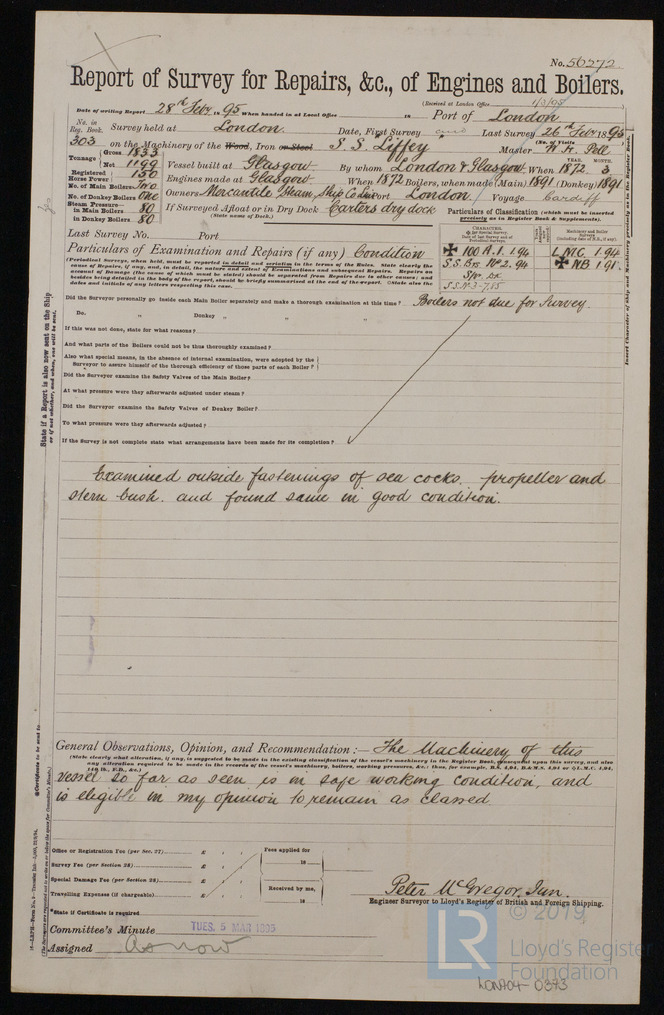 No. 56272
Report of Survey for Repairs, &c., of Engines and Boilers.
(Received at London Office 1/3/95
Date of writing Report 28th Febr. 1895 When handed in at Local Office 18 Port of London
No. in Reg. Book. Survey held at London. Date, First Survey and Last Survey 26th Febr 1895
(No. of Visits
303 on the Machinery of the Wood, Iron or Steel S.S. Liffey Master
Tonnage Gross 1833
Net 1199 Vessel built at Glasgow By whom London & Glasgow When 1872 YEAR. MONTH. 3
Registered Horse Power 150 Engines made at Glasgow When 1872 Boilers, when made (Main) 1891 (Donkey) 1891
No. of Main Boilers Two
No. of Donkey Boilers One Owners Mercantile Steam Ship Co Ld Port London. Voyage Cardiff
Steam Pressure—
in Main Boilers 80 If Surveyed Afloat or in Dry Dock Carters dry dock
(State name of Dock.)
in Donkey Boilers 80
Particulars of Classification (which must be inserted precisely as in Register Book & Supplements).
Last Survey No. Port
Particulars of Examination and Repairs (if any) Condition
✠ 100 A.1. 1.94
S.S. No 2.94
S.S. No 3-7,85
L.M.C. 1.94
✠ NB 1.91
Did the Surveyor personally go inside each Main Boiler separately and make a thorough examination at this time? Boilers not due for Survey
Do. " Donkey " " "
If this was not done, state for what reasons?
And what parts of the Boilers could not be thus thoroughly examined?
Also what special means, in the absence of internal examination, were adopted by the
Surveyor to assure himself of the thorough efficiency of those parts of each Boiler?
Did the Surveyor examine the Safety Valves of the Main Boiler?
At what pressure were they afterwards adjusted under steam?
Did the Surveyor examine the Safety Valves of Donkey Boiler?
To what pressure were they afterwards adjusted?
If the Survey is not complete state what arrangements have been made for its completion?
Examined outside fastenings of sea cocks. propeller and
stern bush. and found same in good condition.
General Observations, Opinion, and Recommendation:— The Machinery of this
vessel so far as seen is in safe working condition, and
is eligible in my opinion to remain as classed
Office or Registration Fee (per Sec. 27) £
Survey Fee (per Section 28) £
Special Damage Fee (per Section 28) £
Travelling Expenses (if chargeable) £
Fees applied for
18
Received by me,
18
Peter McGregor, Jun.
Engineer Surveyor to Lloyd's Register of British and Foreign Shipping.
*State if Certificate is required
Committee's Minute TUES. 5 MAR 1895
Assigned As now
State if a Report is also now sent on the Ship
or if not, whether, and when, one will be sent.
© 2019
LR
Lloyd's Register
Foundation
LON704-0393